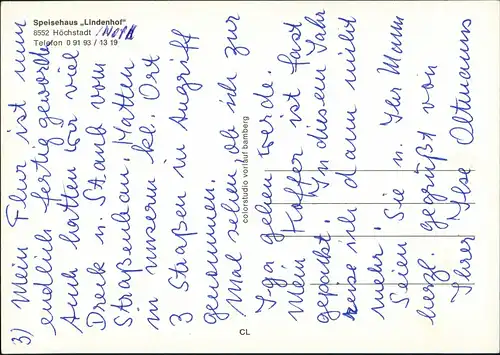 Speisehaus „Lindenhof"
8552 Höchstadt /Nord
Telefon 0 91 93 / 13 19
3) Mein Flur ist nun
endlich fertig geworden
Auch hatten wir viel
Dreck u. Staub vom
Straßenbau. Hatten
in unserm kl. Ort
3 Staaßen in Angriff
genommen.
Mal sehen, ob ich zur
gehen werde.
Mein Koffer ist fast
gepackt. In diesem Jahr
reise ich dann nicht
mehr.
Seien Sie u. Ihr Mann
herzl. gegrüßt von
Ihrer Ilse Oltmanns
colorstudio vorlauf bamberg
CL